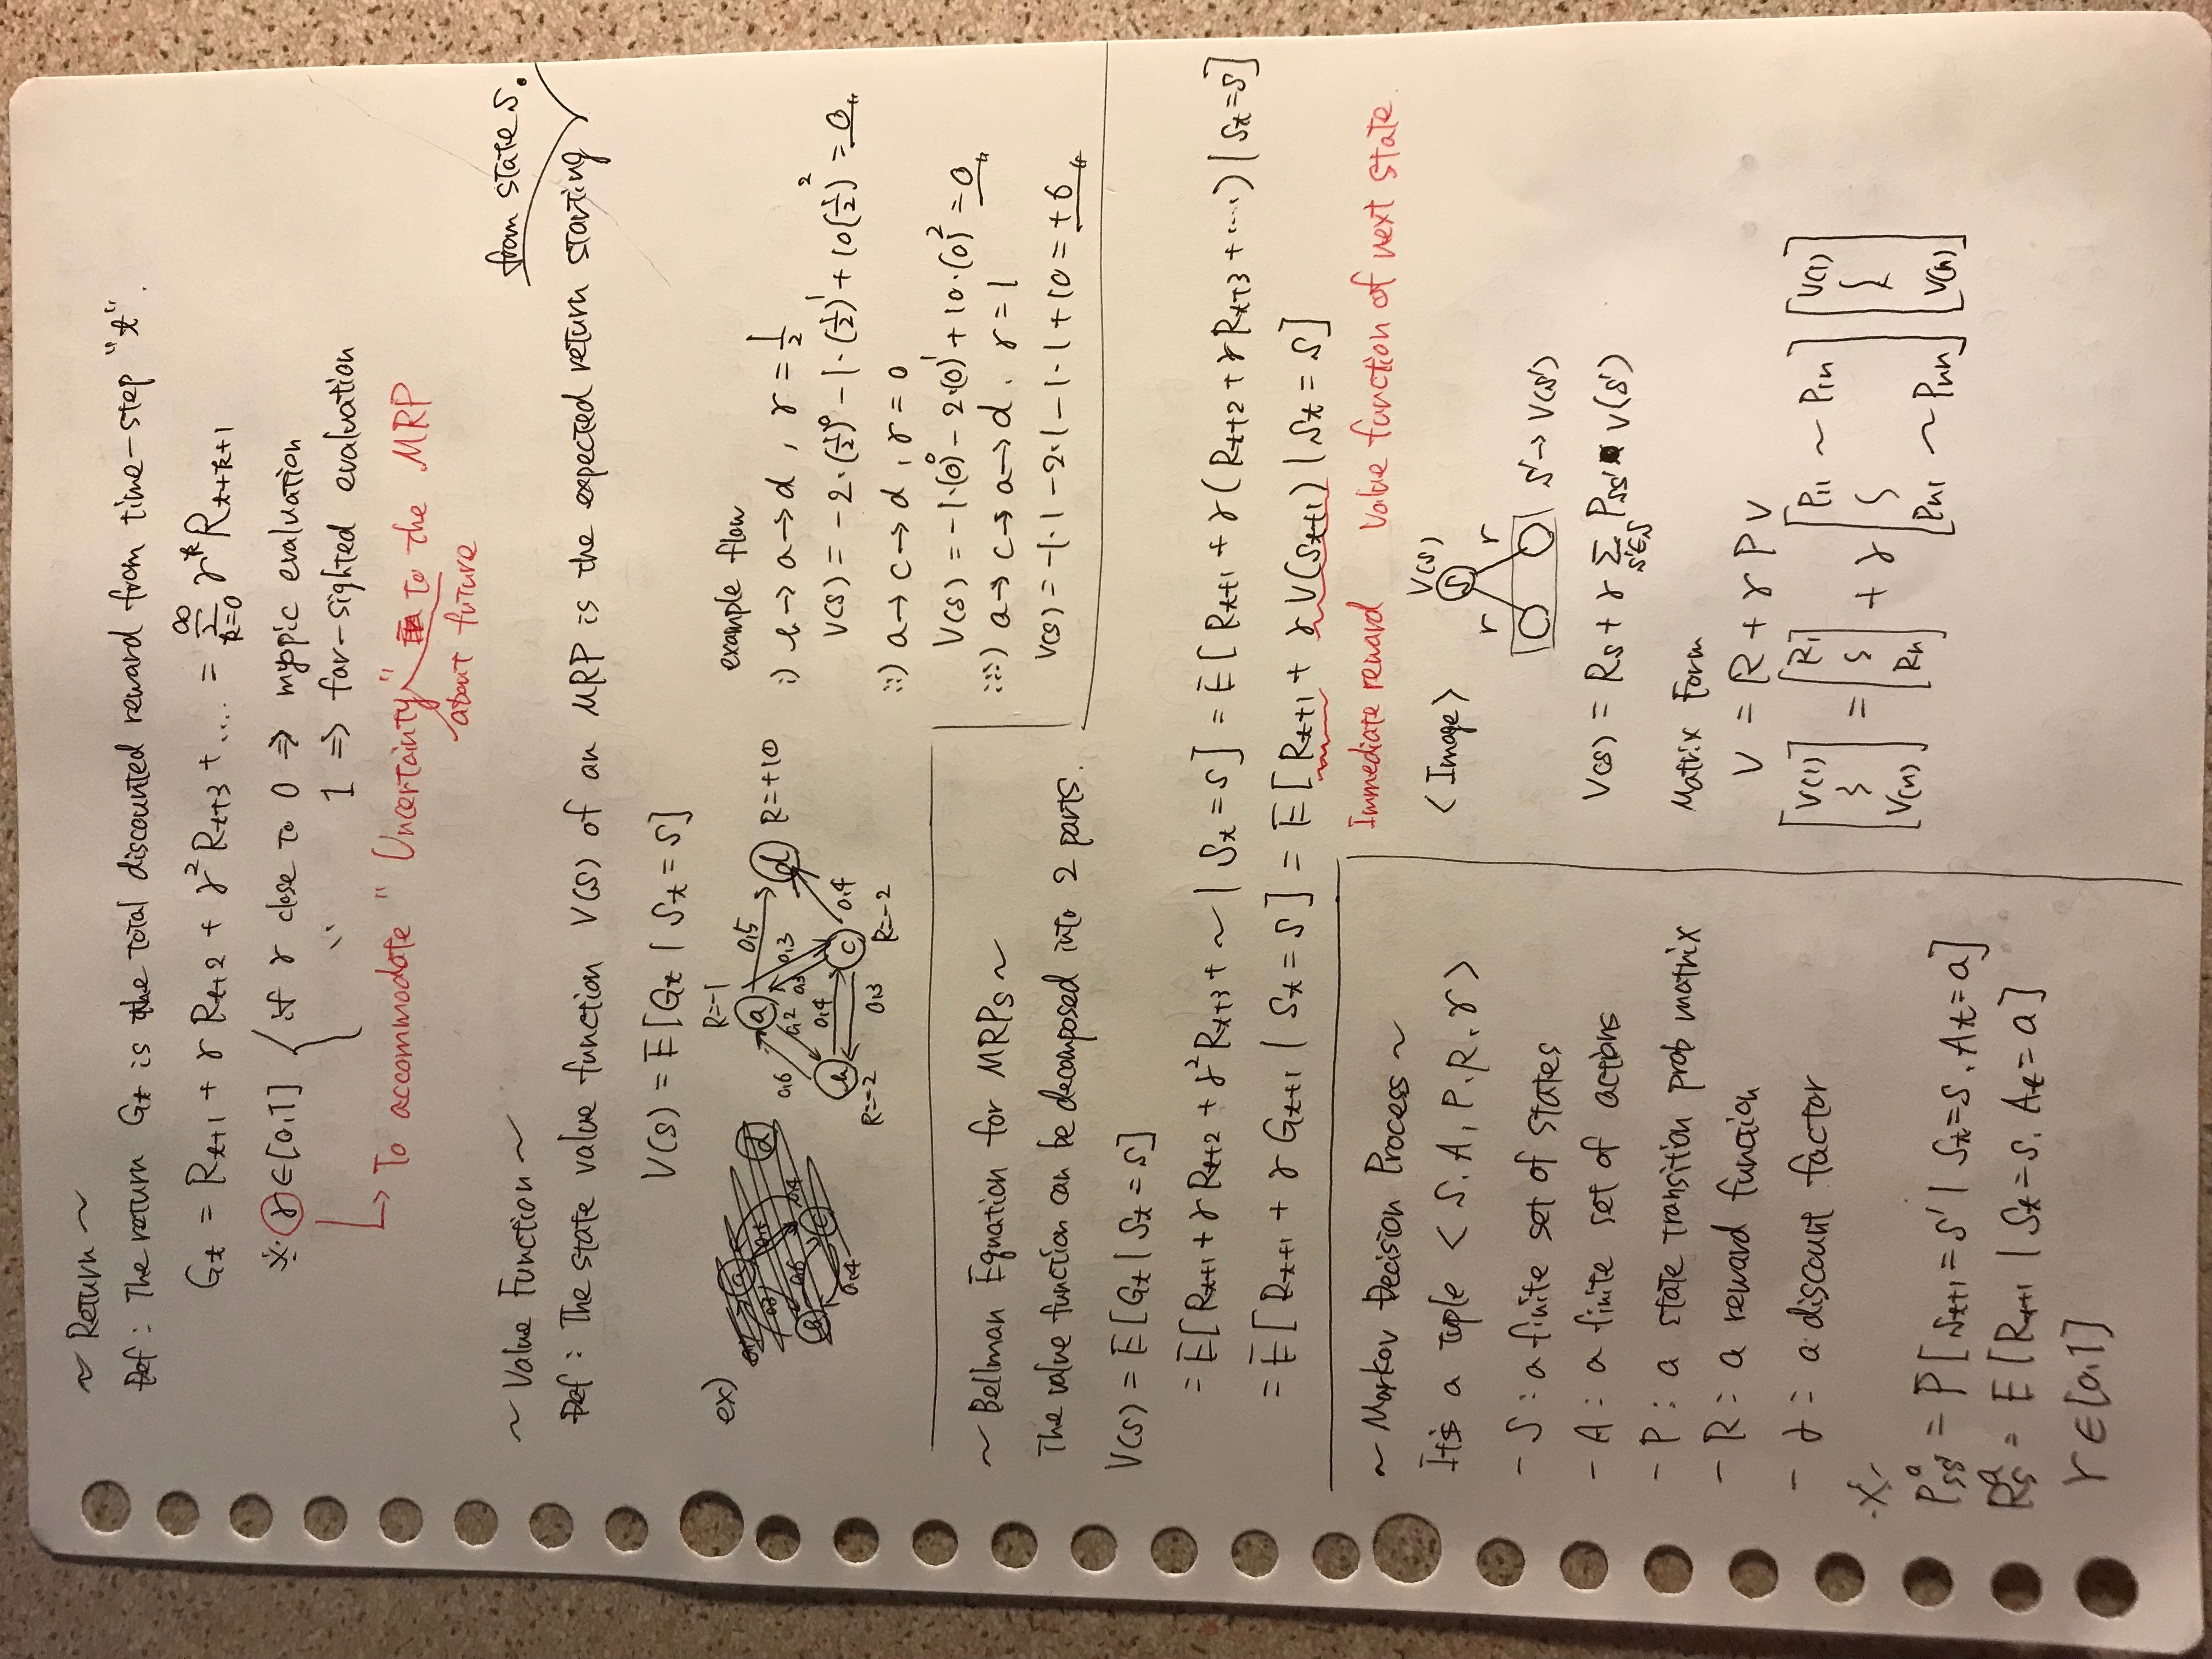 ~ Return ~
Def : The return Gt is the total discounted reward from time-step "t".
Gt = Rt+1 + γ Rt+2 + γ² Rt+3 + .... = ∞ Σ k=0 γ^k Rt+k+1
※ γ ∈ [0,1] { if γ close to 0 ⇒ myopic evaluation
〃 1 ⇒ far-sighted evaluation
↳ To accommodate "Uncertainty" to the MRP
about future
~ Value Function ~
from state s.
Def : The state value function V(s) of an MRP is the expected return starting
V(s) = E[Gt | St = s]
ex)
R=-1
a 0,5 d R=+10
0,6 0,2 0,3 0,3
b 0,4 c 0,4
R=-2 0,3 R=-2
example flow
i) b → a → d , γ = 1/2
V(s) = -2·(1/2)^0 - 1·(1/2)^1 + 10(1/2)^2 = 0
ii) a → c → d , γ = 0
V(s) = -1·(0)^0 - 2·(0)^1 + 10·(0)^2 = 0
iii) a → c → a → d . γ = 1
V(s) = -1·1 - 2·1 - 1·1 + 10 = +6
~ Bellman Equation for MRPs ~
The value function can be decomposed into 2 parts.
V(s) = E[Gt | St = s]
= E[Rt+1 + γ Rt+2 + γ² Rt+3 + ~ | St = s] = E[Rt+1 + γ(Rt+2 + γ Rt+3 + ....) | St = s]
= E[Rt+1 + γ Gt+1 | St = s] = E[Rt+1 + γ V(St+1) | St = s]
Immediate reward Value function of next state.
~ Markov Decision Process ~
It's a tuple < S. A, P. R. γ >
- S : a finite set of states
- A : a finite set of actions
- P : a state transition prob matrix
- R : a reward funcion
- γ : a discount factor
※
P^a ss' = P[St+1 = s' | St = s . At = a]
R^a s = E[Rt+1 | St = s. At = a]
γ ∈ [0,1]
<Image>
V(s)
s
r r
s' → V(s')
V(s) = Rs + γ Σ s'∈S Pss' V(s')
Matrix Form
V = R + γ P V
[V(1) ⋮ V(n)] = [R1 ⋮ Rn] + γ [P11 ~ P1n ⋮ Pn1 ~ Pnn] [V(1) ⋮ V(n)]